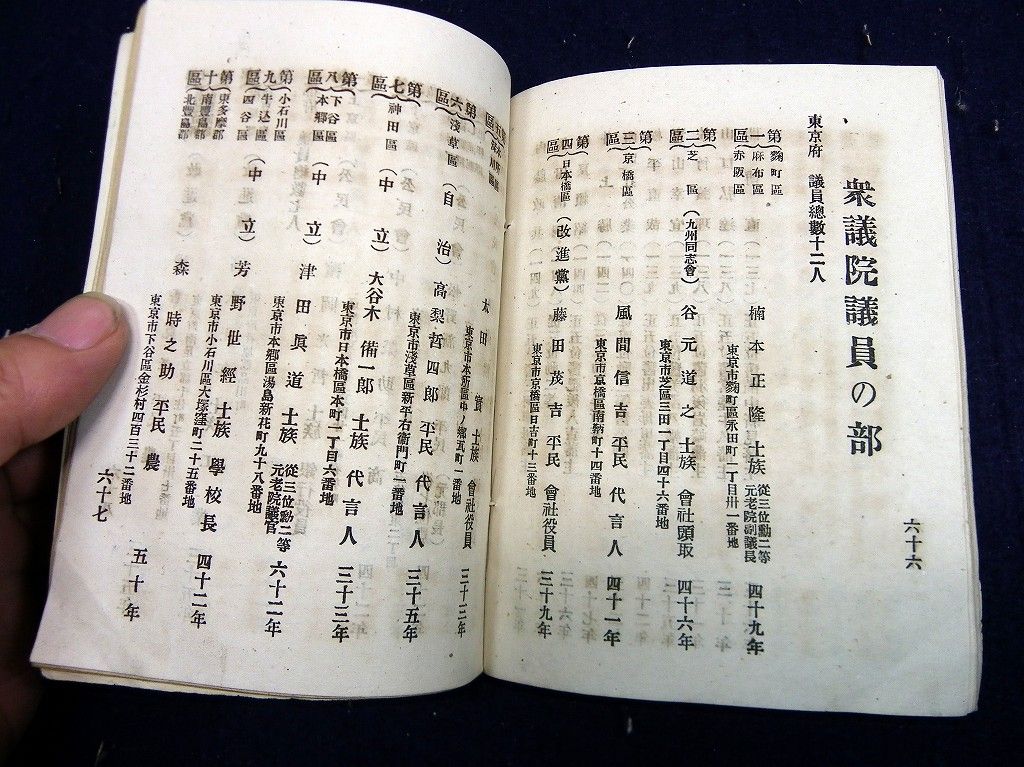 六十六
衆議院議員の部
東京府 議員總數十二人
第一區 麴町區 麻布區 赤阪區
楠本正隆 士族 從三位勳二等 元老院副議長 四十九年
東京市麴町區永田町二丁目卅一番地
第二區 芝區 (九州同志會) 谷元道之 士族 會社頭取 四十六年
東京市芝區三田一丁目四十六番地
第三區 京橋區 風間信吉 平民 代言人 四十一年
東京市京橋區南鞘町十四番地
第四區 日本橋區 (改進黨) 藤田茂吉 平民 會社役員 三十九年
東京市京橋區日吉町十三番地
太田實 士族 會社役員 三十三年
東京市本所區中ノ郷瓦町一番地
第六區 淺草區 (自治) 高梨哲四郎 平民 代言人 三十五年
東京市淺草區新平右衞門町一番地
第七區 神田區 (中立) 大谷木備一郎 士族 代言人 三十三年
東京市日本橋區本町一丁目六番地
第八區 下谷區 本郷區 (中立) 津田眞道 士族 從三位勳二等 元老院議官 六十二年
東京市本郷區湯島新花町九十八番地
第九區 小石川區 牛込區 四谷區 (中立) 芳野世經 士族 學校長 四十二年
東京市小石川區大塚窪町二十五番地
第十區 東多摩郡 南豐島郡 北豐島郡 森時之助 平民 農 五十年
東京市下谷區金杉村四百三十二番地
六十七